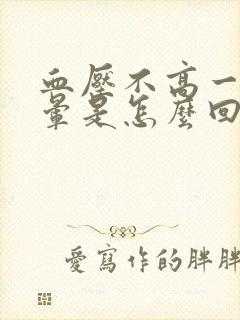 血壓不高一
暈是怎麼回
愛寫作的胖胖